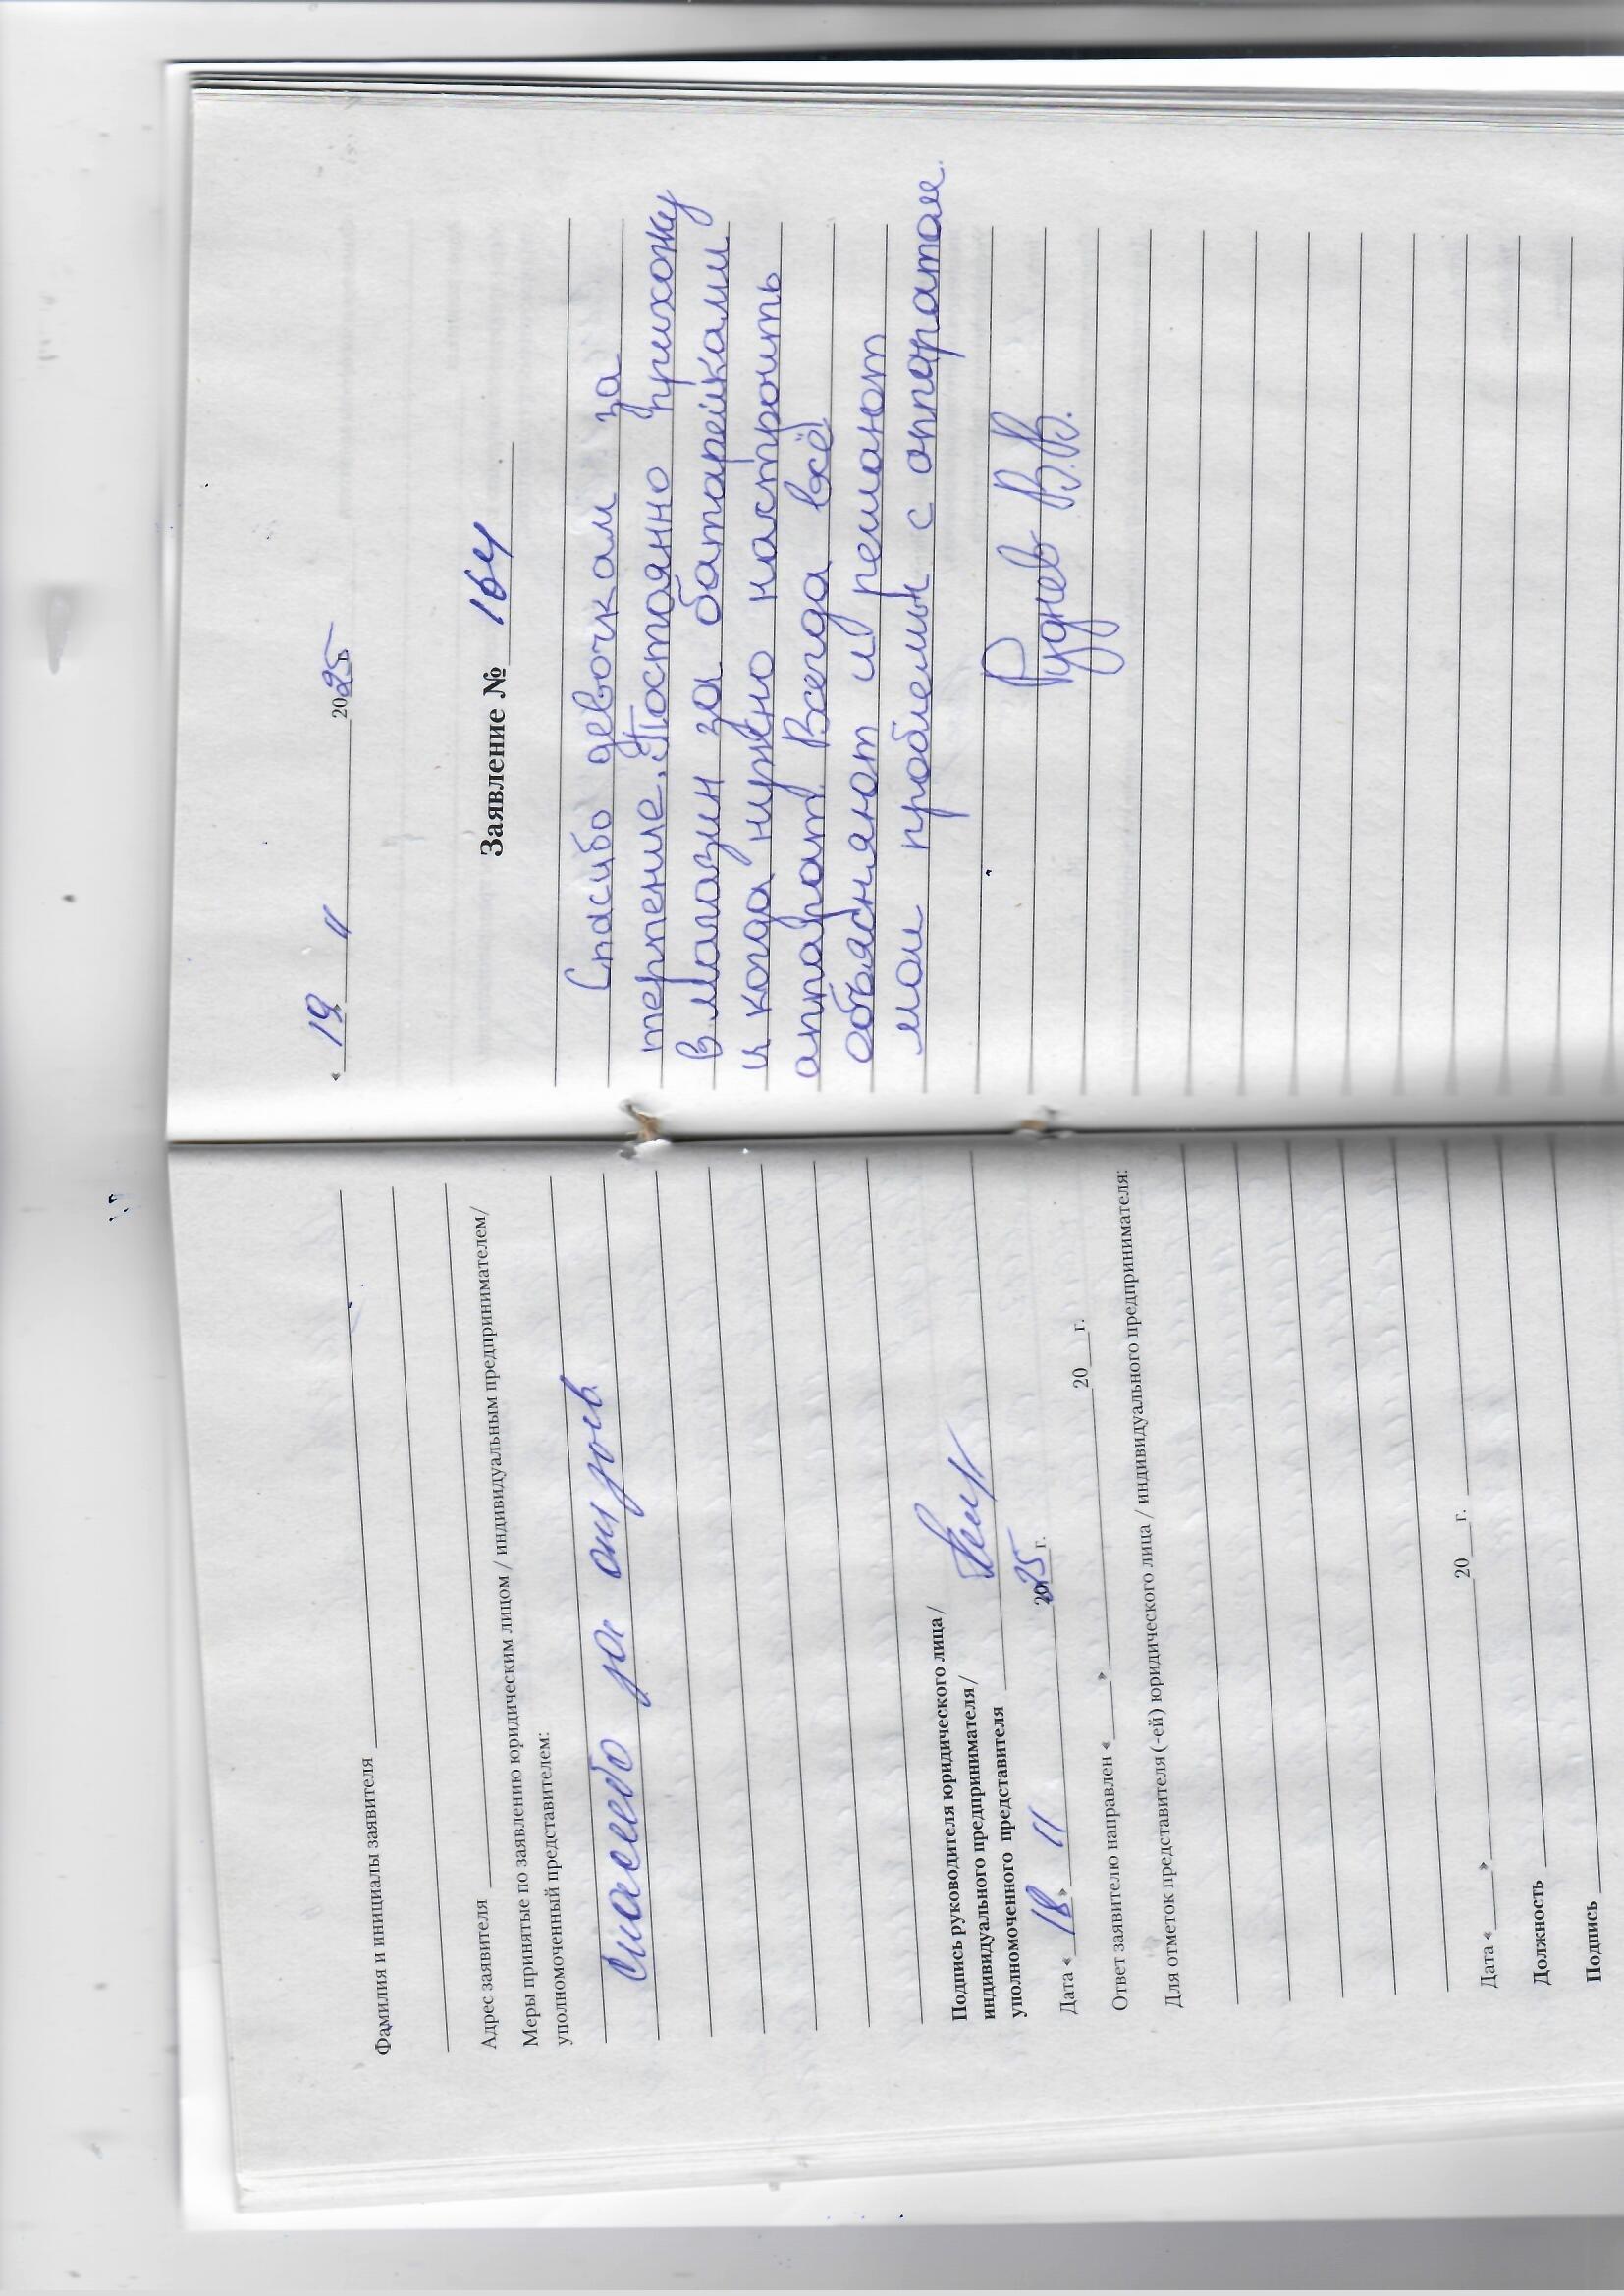 Фамилия и инициалы заявителя
Адрес заявителя
Меры принятые по заявлению юридическим лицом / индивидуальным предпринимателем/
уполномоченный представителем:
Спасибо за отзыв
Подпись руководителя юридического лица /
индивидуального предпринимателя/
уполномоченного представителя
Дата « 18 » 11 2025 г.
Ответ заявителю направлен « » 20 г.
Для отметок представителя(-ей) юридического лица / индивидуального предпринимателя:
Дата « » 20 г.
Должность
Подпись
« 19 11 2025 г.
Заявление № 164
Спасибо девочкам за
терпение. Постоянно прихожу
в магазин за батарейками
и когда нужно настроить
аппарат. Всегда всё
объясняют и решают
мои проблемы с аппаратом.
Руднев В.В.